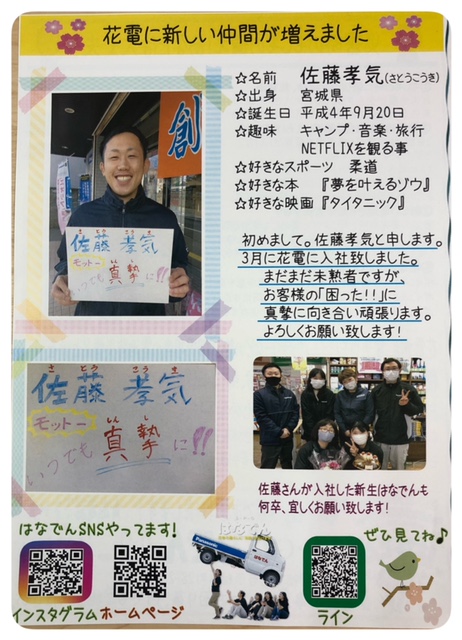 花電に新しい仲間が増えました
☆名前 佐藤孝気(さとうこうき)
☆出身 宮城県
☆誕生日 平成4年9月20日
☆趣味 キャンプ・音楽・旅行
NETFLIXを観る事
☆好きなスポーツ 柔道
☆好きな本 『夢を叶えるゾウ』
☆好きな映画 『タイタニック』
創
さ とう こう き
佐藤 孝気
モットー
しん し
いつでも 真摯 に!!
初めまして。佐藤孝気と申します。
3月に花電に入社致しました。
まだまだ未熟者ですが、
お客様の「困った!!」に
真摯に向き合い頑張ります。
よろしくお願い致します!
さ とう こう き
佐藤 孝気
モットー
しん し
いつでも 真摯 に!!
佐藤さんが入社した新生はなでんも
何卒、宜しくお願い致します!
はなでんSNSやってます!
はなでん
Panasonic
ぜひ見てね♪
インスタグラム
ホームページ
ライン